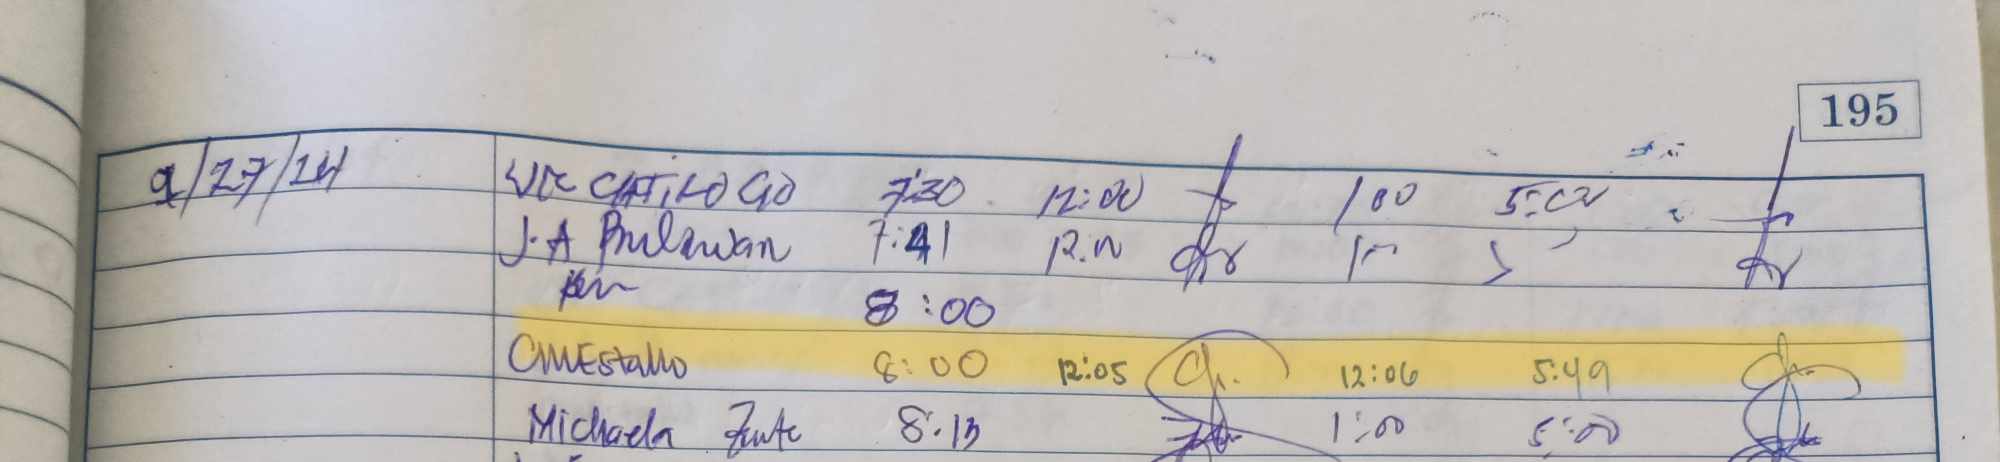 195
9/27/24 CATILOGO 7:30 12:00 1:00 5:02
J.A Bulawan 7:41 12:00 1:00
8:00
CMEstallo 8:00 12:05 12:06 5:49
Michaela 8:13 1:00 5:00